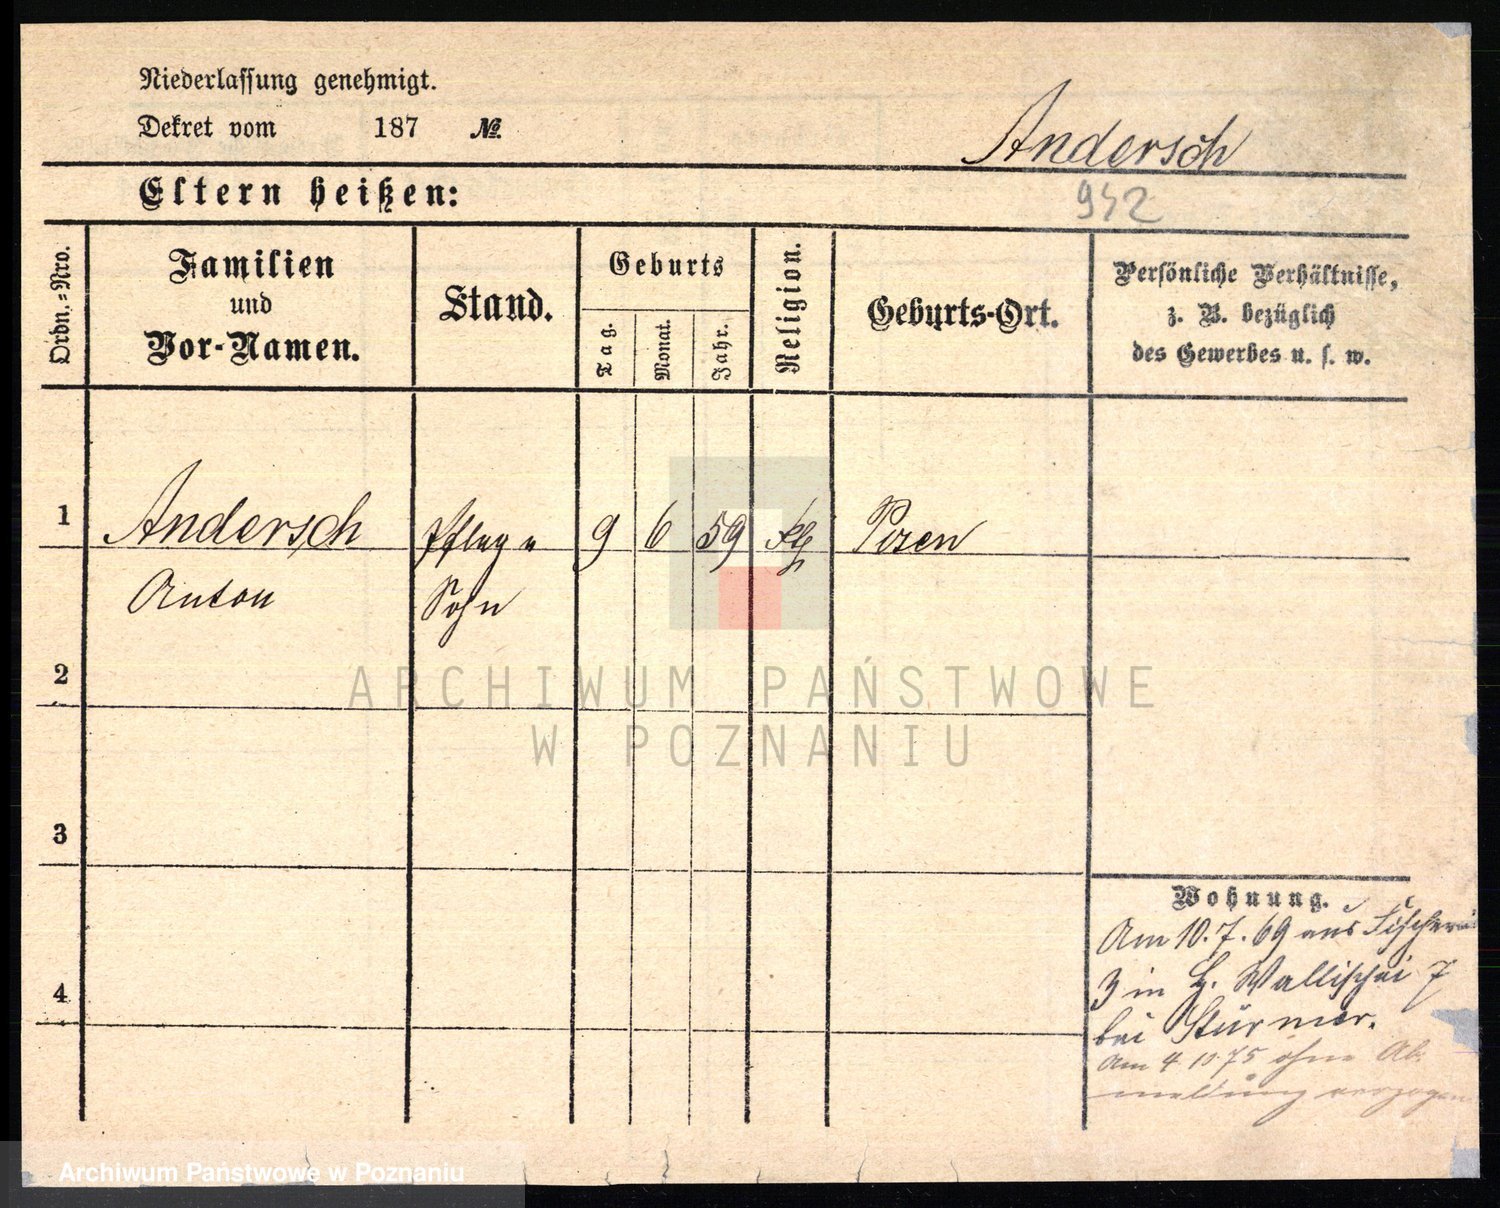 Niederlassung genehmigt.
Dekret vom 187 №.
Andersch
Eltern heißen:
942
Ordn.-Nro.
Familien
und
Vor-Namen.
Stand.
Geburts
Tag.
Monat.
Jahr.
Religion.
Geburts-Ort.
Persönliche Verhältnisse,
z. B. bezüglich
des Gewerbes u. s. w.
1 Andersch Pfleg 9 6 59 Posen
Anton Sohn
2
ARCHIWUM PAŃSTWOWE
W POZNANIU
3
Wohnung.
Am 10. 7. 69 aus Fischerei
3 in Wallischei 7
bei Stürmer.
4
Am 4 10 75 ohne Ab
meldung verzogen
Archiwum Państwowe w Poznaniu